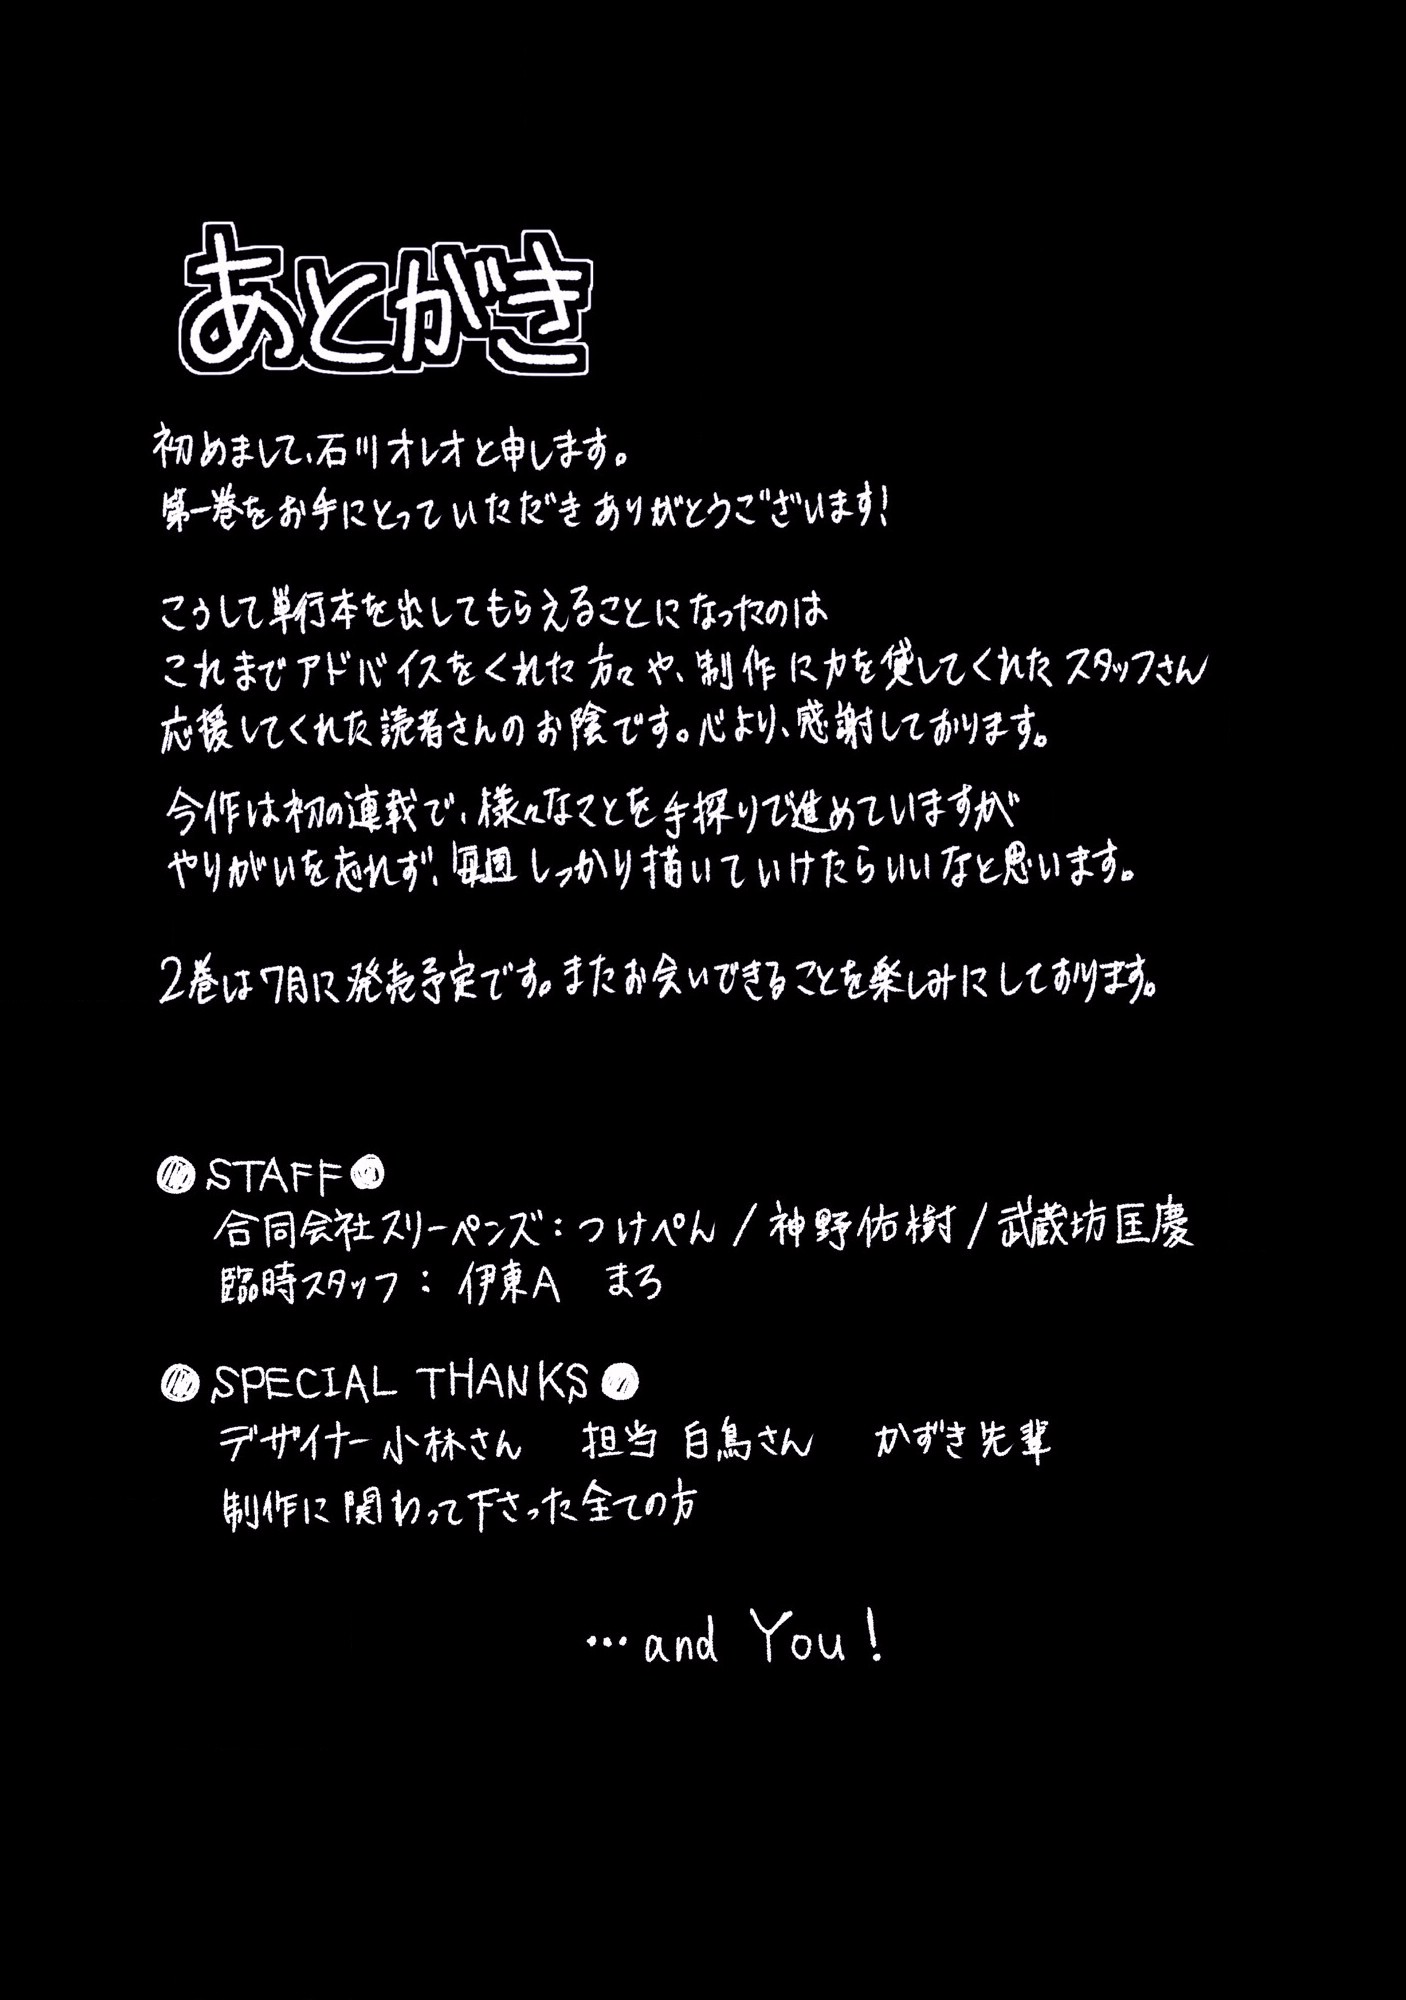 あとがき
初めまして、石川オレオと申します。
第一巻をお手にとっていただきありがとうございます!
こうして単行本を出してもらえることになったのは
これまでアドバイスをくれた方々や、制作に力を貸してくれたスタッフさん
応援してくれた読者さんのお陰です。心より、感謝しております。
今作は初の連載で、様々なことを手探りで進めていますが
やりがいを忘れず、毎週しっかり描いていけたらいいなと思います。
2巻は7月に発売予定です。またお会いできることを楽しみにしております。
●STAFF●
合同会社スリーペンズ:つけぺん/神野佑樹/武蔵坊匡慶
臨時スタッフ:伊東A まろ
●SPECIAL THANKS●
デザイナー小林さん 担当 白鳥さん かずき先輩
制作に関わって下さった全ての方
…and You!